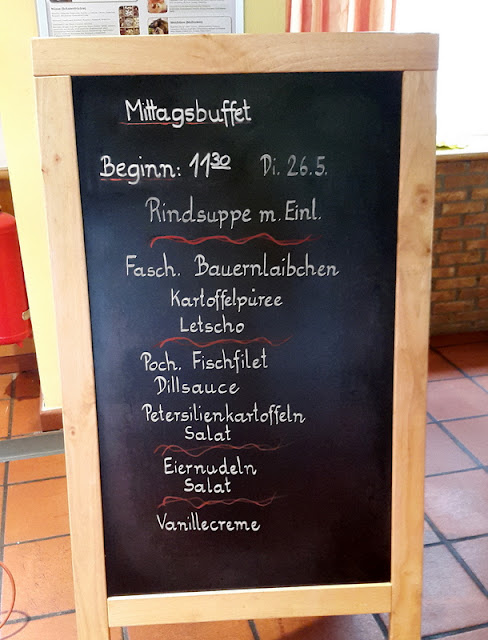 Mittagsbuffet
Beginn: 11³⁰ Di. 26.5.
Rindsuppe m. Einl.
Fasch. Bauernlaibchen
Kartoffelpüree
Letscho
Poch. Fischfilet
Dillsauce
Petersilienkartoffeln
Salat
Eiernudeln
Salat
Vanillecreme